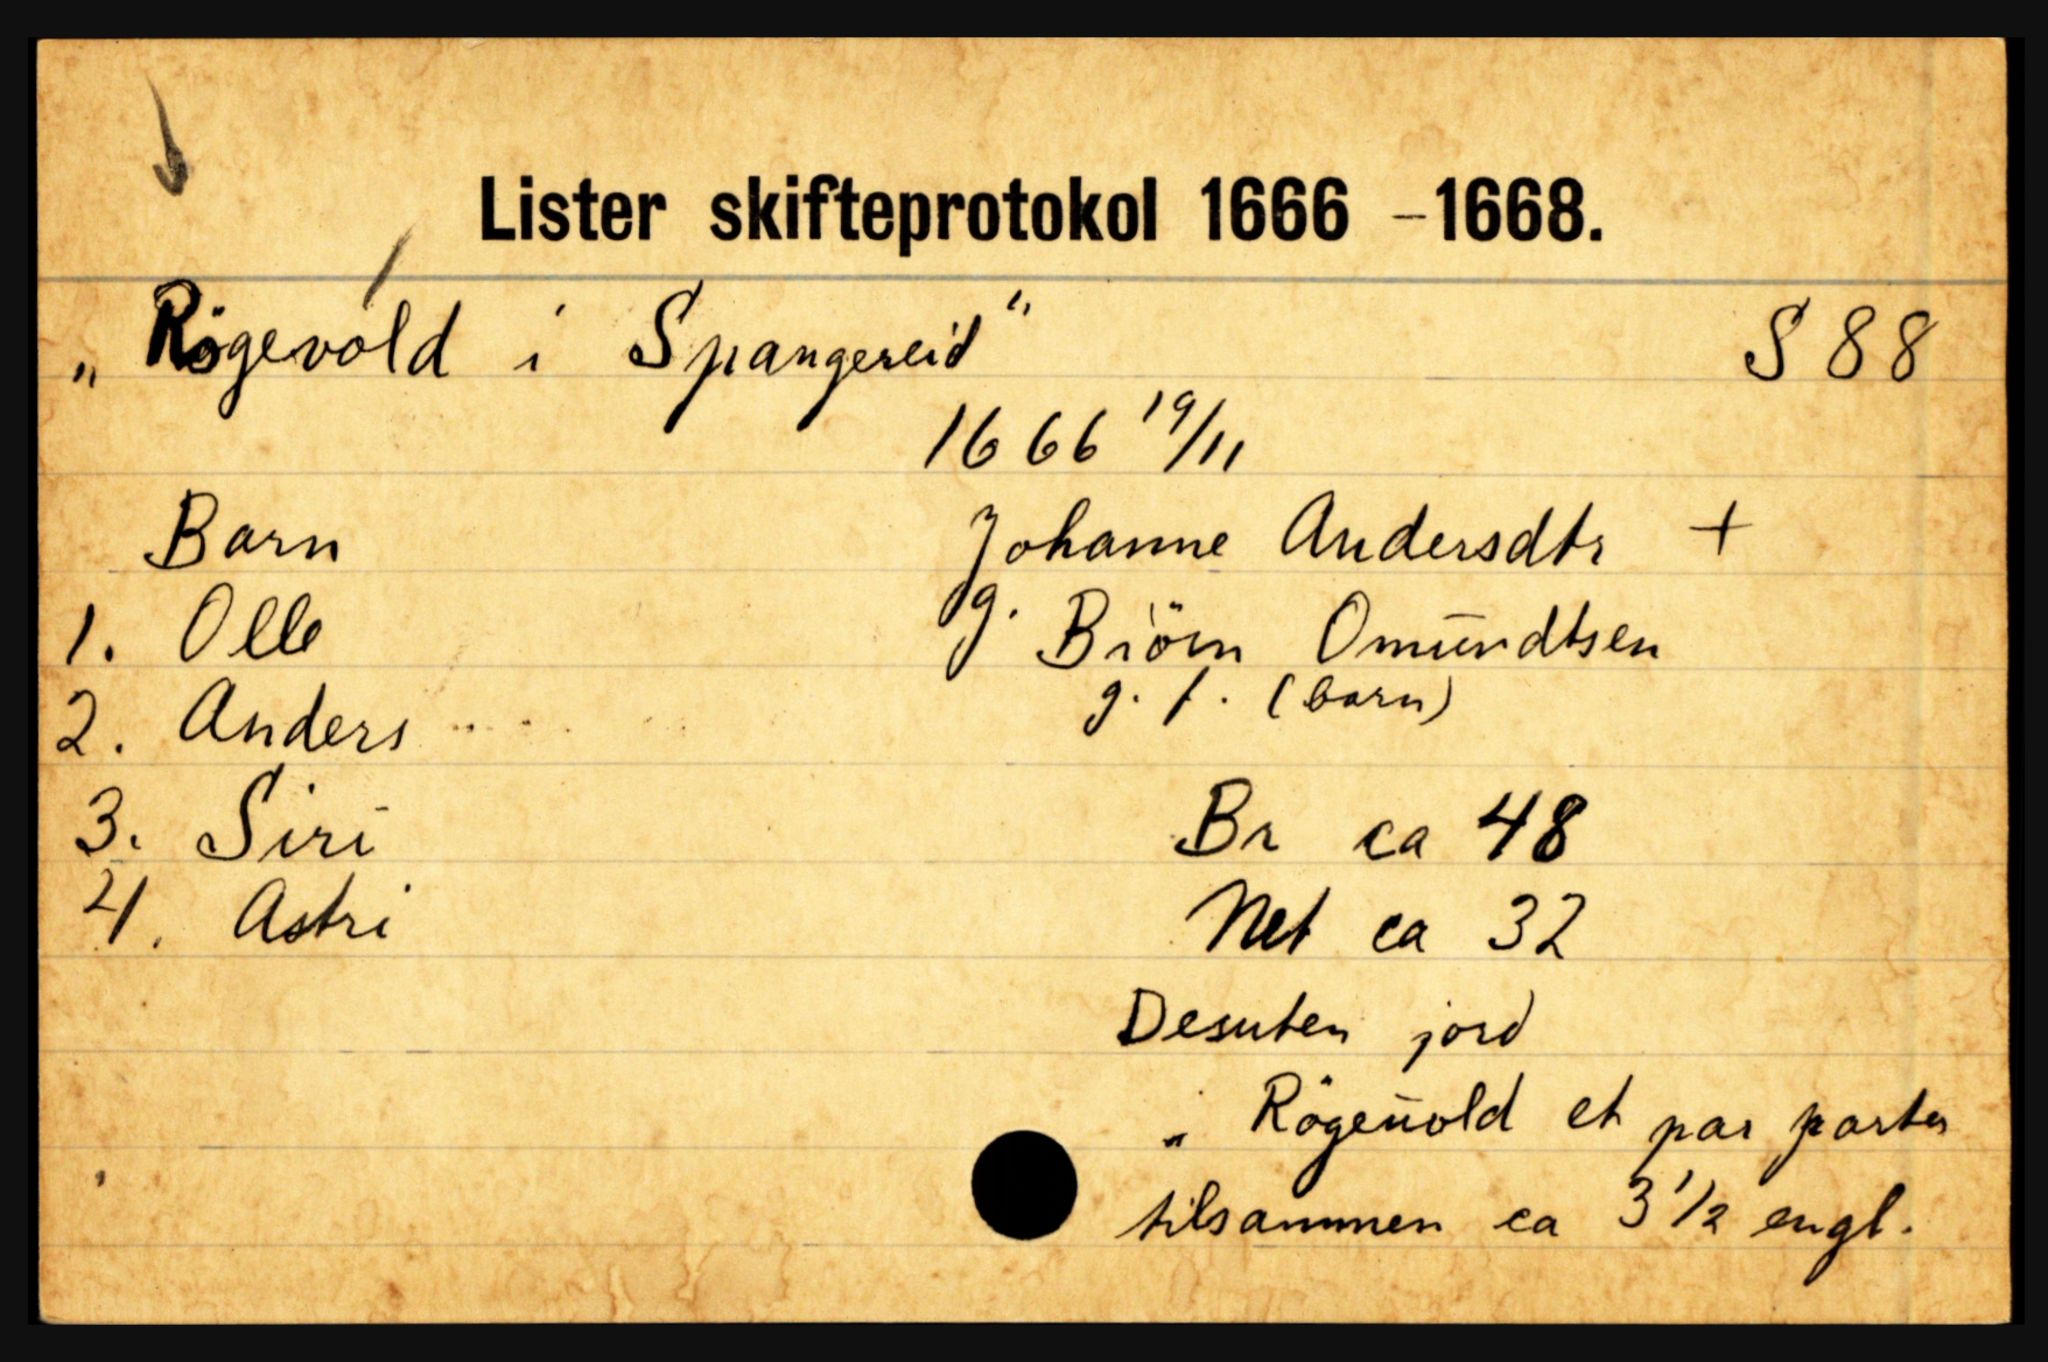 Lister skifteprotokol 1666 – 1668.
„ Rögevold i Spangereid" S 88
1666 19/11
Barn Johanne Andersdtr +
1. Olle g. Biörn Omūndtsen
2. Anders g. f. (barn)
3. Siri Br ca 48
4. Astri Net ca 32
Desuten jord
„ Rögeūold et par parter
tilsammen ca 3 1/2 engl.